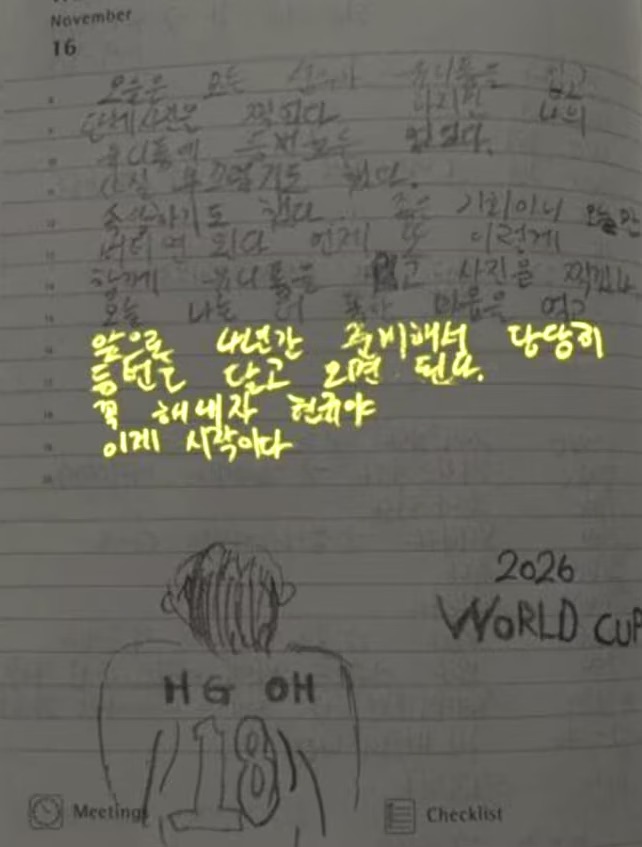 November
16
오늘은 모든 선수가 유니폼을 입고
단체사진을 찍었다 하지만 나의
유니폼에 등번호는 없었다.
사실 부끄럽기도 했다.
속상하기도 했다 좋은 기회이니 오늘만
버티면 된다 언제 또 이렇게
함께 유니폼을 입고 사진을 찍겠나
오늘 나는 더 독한 마음을 먹고
앞으로 4년간 준비해서 당당히
등번호 달고 오면 된다.
꼭 해내자 현규야
이제 시작이다
2026
WORLD CUP
HG OH
18
Meetings
Checklist